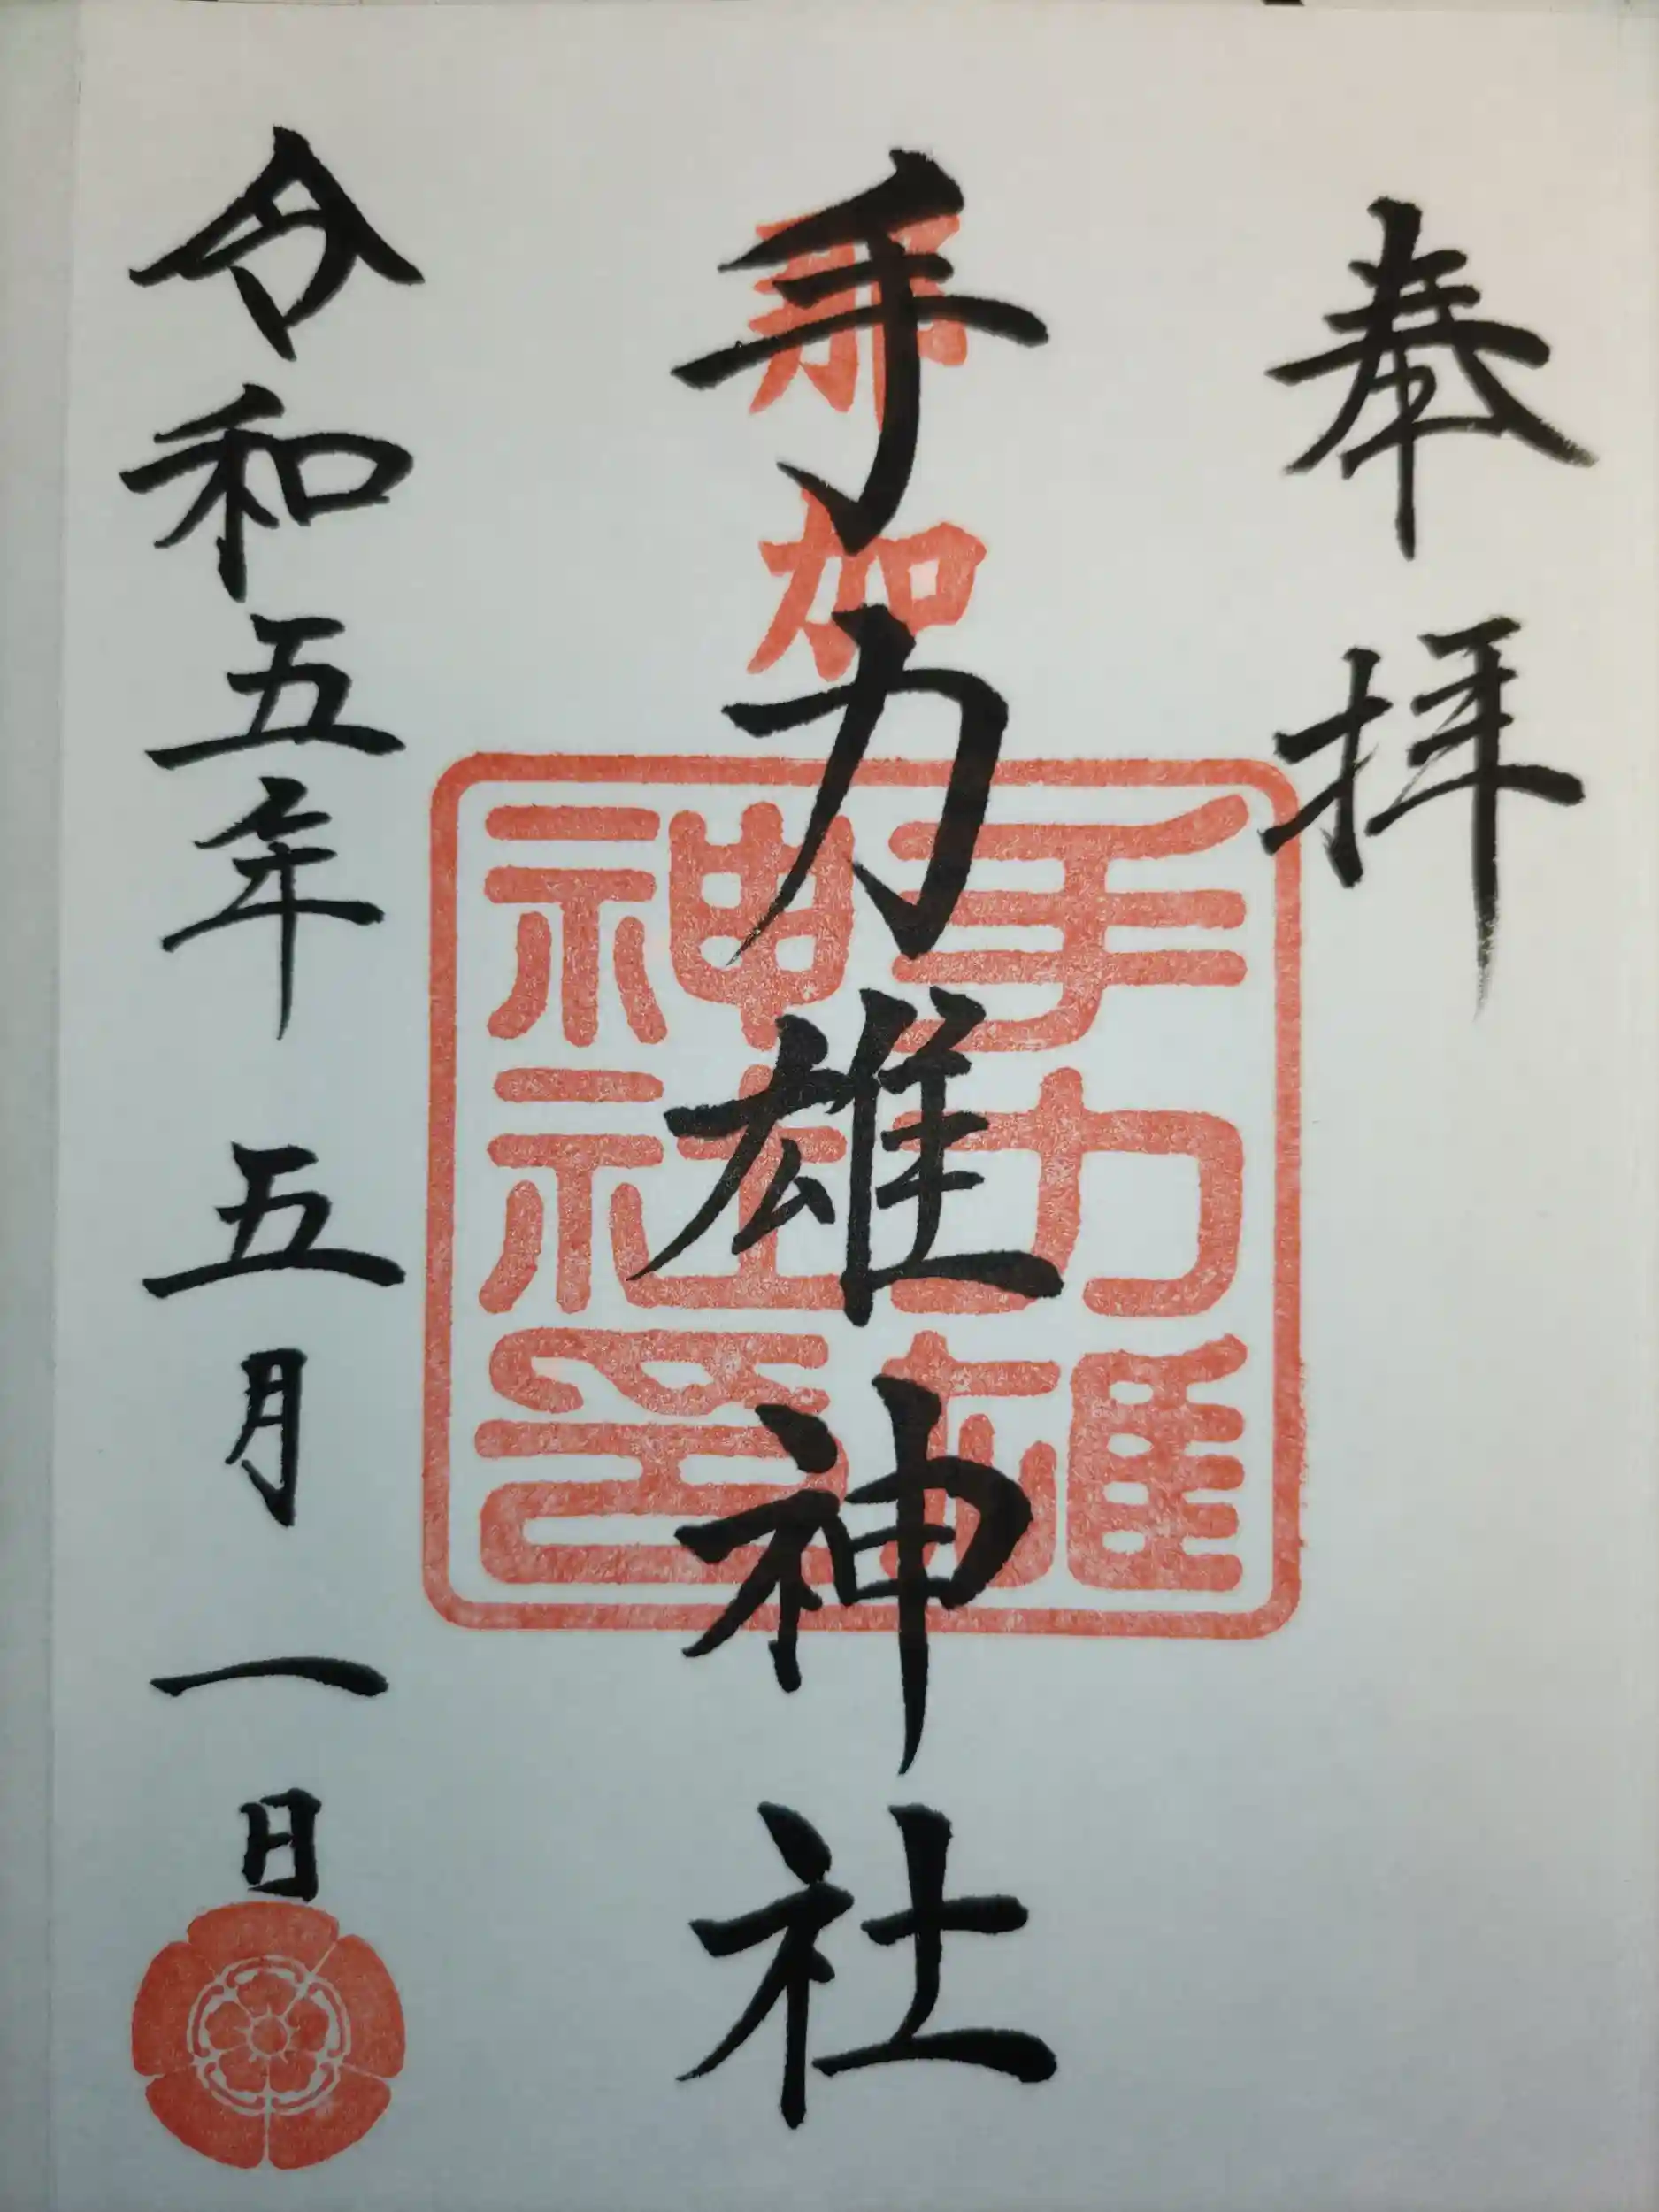 奉拝
那加
手力雄神社
手力雄
神社印
令和五年 五月 一日